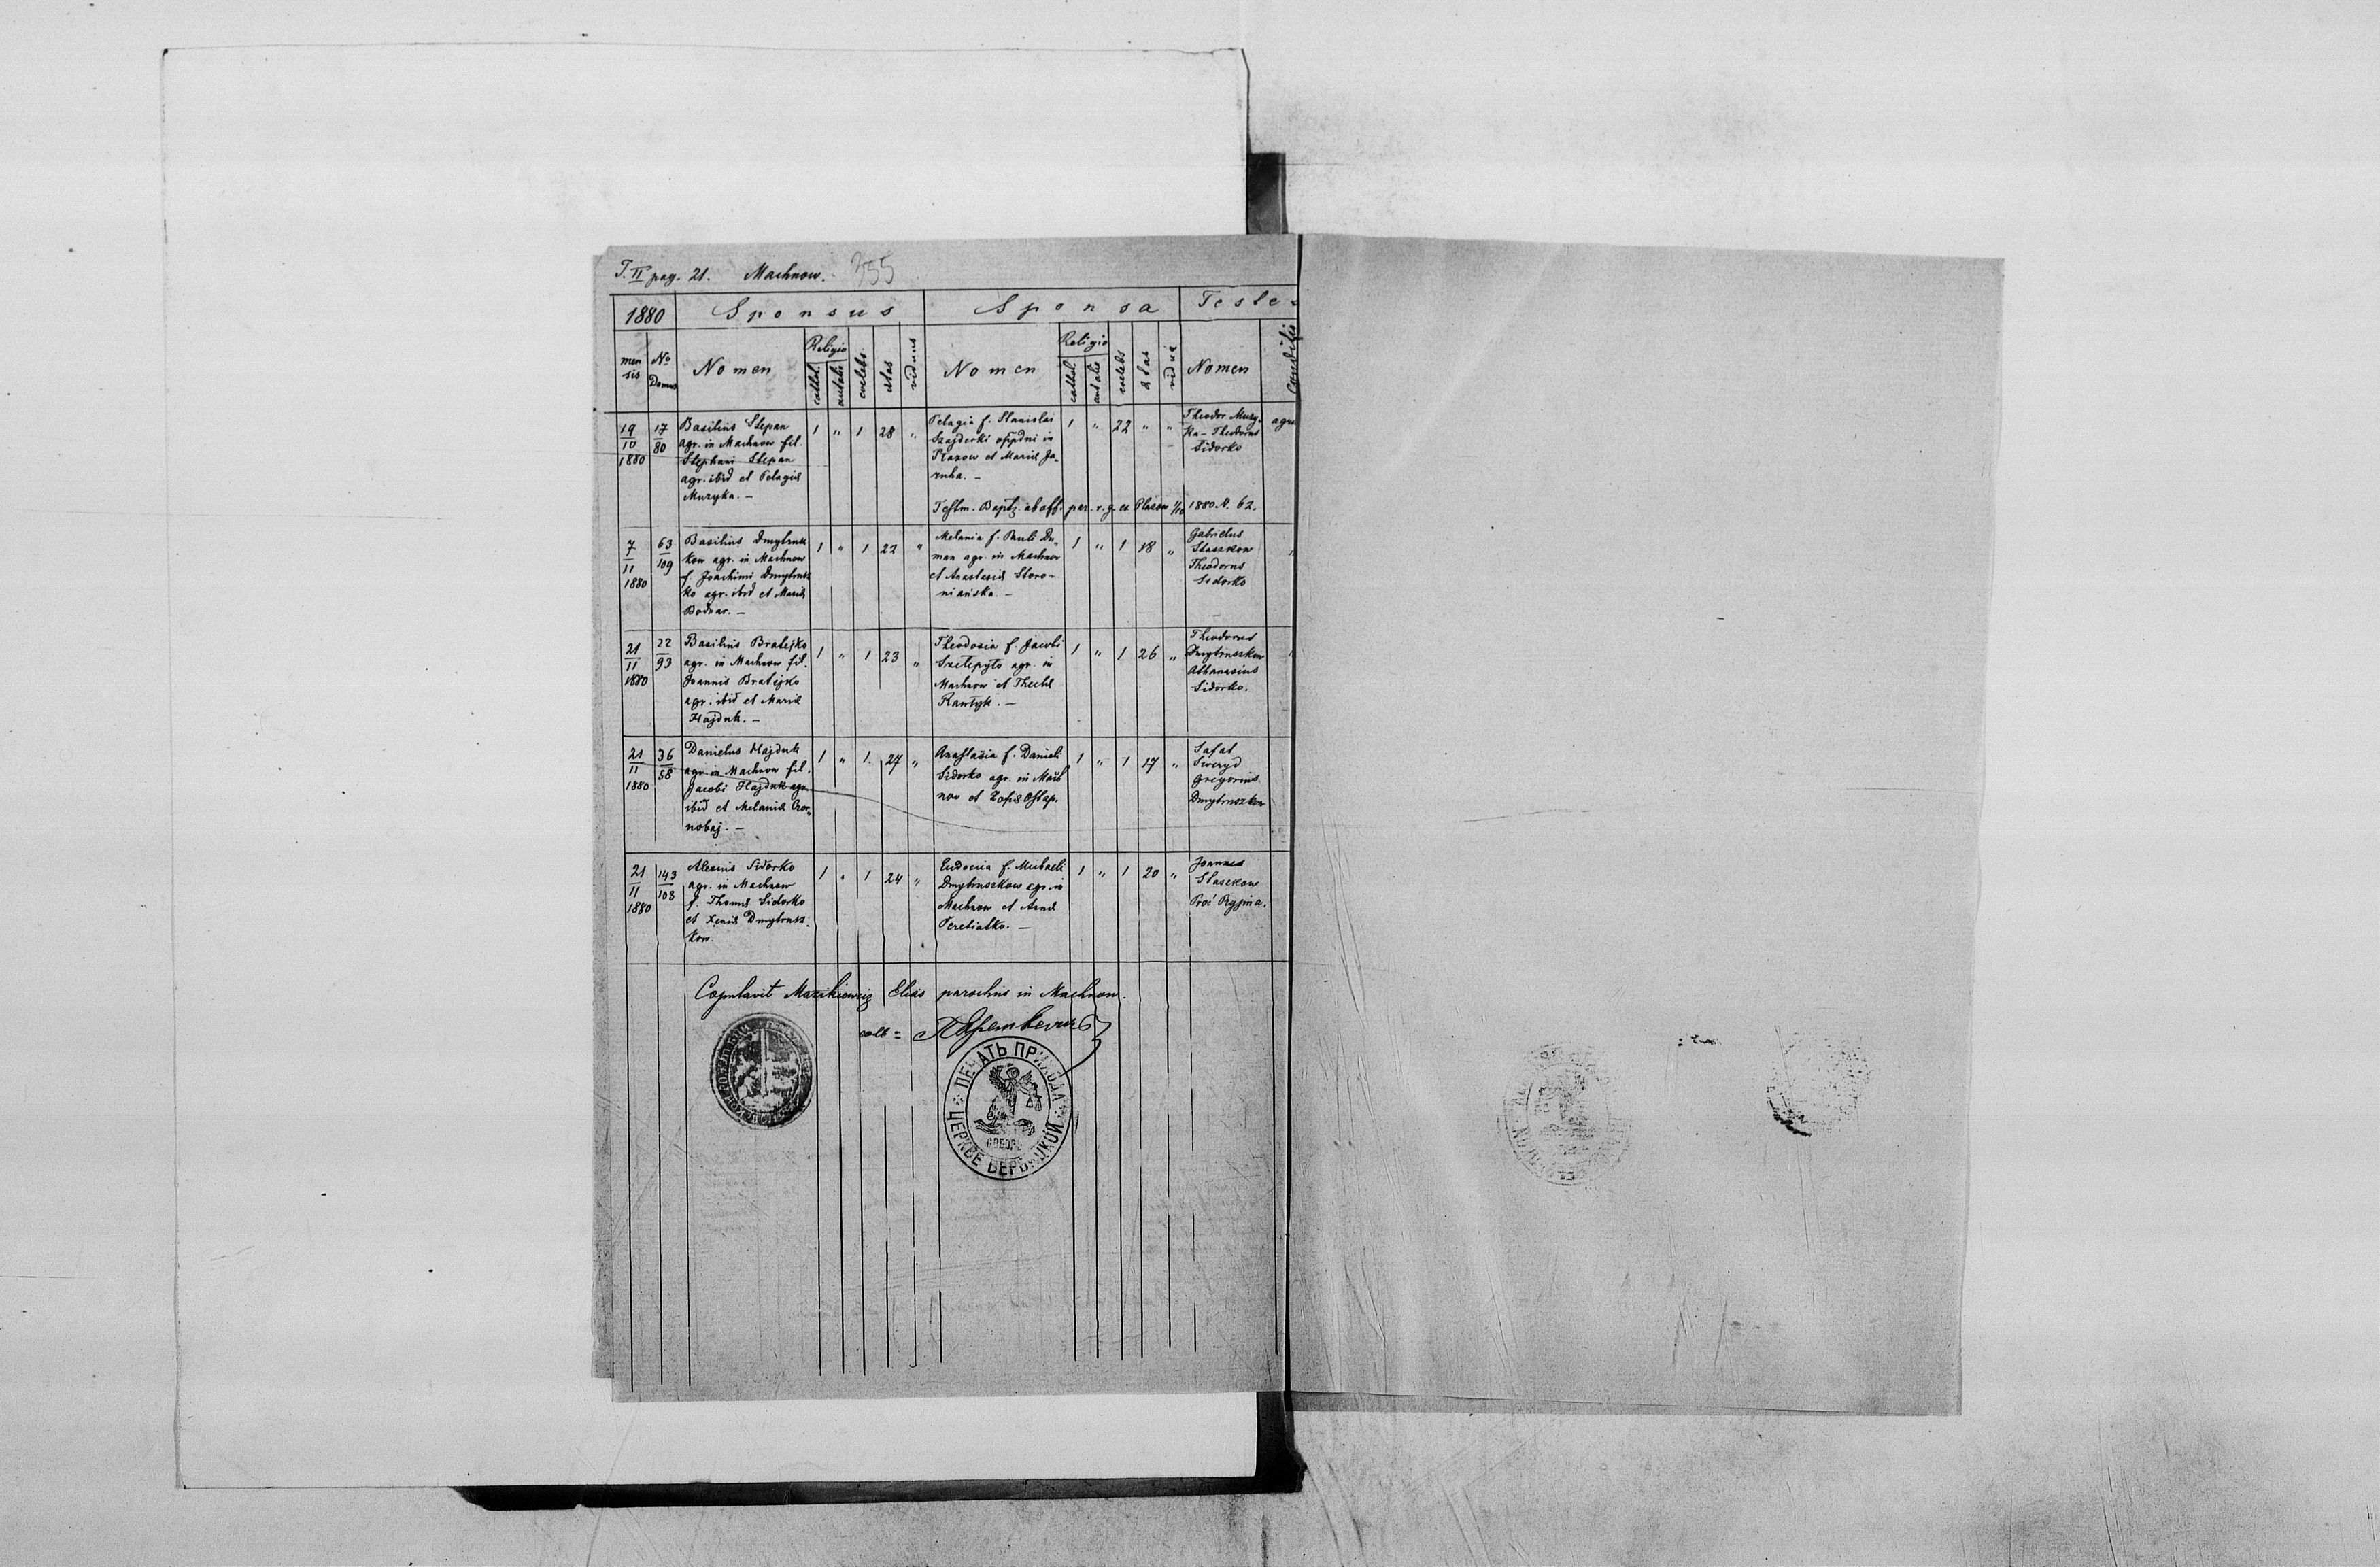 T. II pag. 21. Machnow. 355
1880 Sponsus Sponsa Testes
mensis No Domus Nomen Religio cathol. aut alia coelebs aetas viduus Nomen Religio cathol. aut alia coelebs aetas vidua Nomen conditio
19/10 1880 17/80
Basilius Stepan
agr. in Machnow fil.
Stephani Stepan
agr. ibid et Pelagiae
Muzyka. –
1 " 1 28 "
Pelagia f. Stanislai
Szajdecki oppdni in
Plazow et Mariae Ja-
ruha. –
1 " 22 " "
Theodor Muzy-
ka – Theodorus
Sidorko
agr.
Testm. Baptz. ab off. par. r. g. ex Plazow 1/10 1880 N. 62.
7/11 1880 63/109
Basilius Dmytrusz
kow agr. in Machnow
f. Joachimi Dmytrusz
ko agr. ibid et Mariae
Bodnar. –
1 " 1 22 "
Melania f. Pauli Du-
man agr. in Machnow
et Anastasiae Storo-
niańska. –
1 " 1 18 "
Gabrielus
Staszkow
Theodorus
Sidorko
21/11 1880 22/93
Basilius Bratejko
agr. in Machnow fil.
Joannis Bratejko
agr. ibid et Mariae
Hajduk. –
1 " 1 23 "
Theodosia f. Jacobi
agr. in
Machnow et Theclae
1 " 1 26 "
Theodorus
Dmytruszkow
Athanasius
Sidorko.
21/11 1880 36/58
Danielus Hajduk
agr. in Machnow fil.
Jacobi Hajduk agr.
ibid et Melaniae Czor-
nobaj. –
1 " 1. 27 "
Anastasia f. Danieli
Sidorko agr. in Mach
now et Zofiae Ostap.
1 " 1 17 "
Gregorius
Dmytruszkow
21/11 1880 143/103
Alexius Sidorko
agr. in Machnow
f. Thomae Sidorko
et Xeniae Dmytrusz-
kow.
1 " 1 24 "
Eudocia f. Michaeli
Dmytruszkow agr. in
Machnow et Annae
Peretiatko. –
1 " 1 20 "
Joannes
Staszkow
Copulavit Mazikiewicz Elias parochus in Machnow.
ПЕЧАТЬ ПРИХОДА
ЦЕРКВЕ